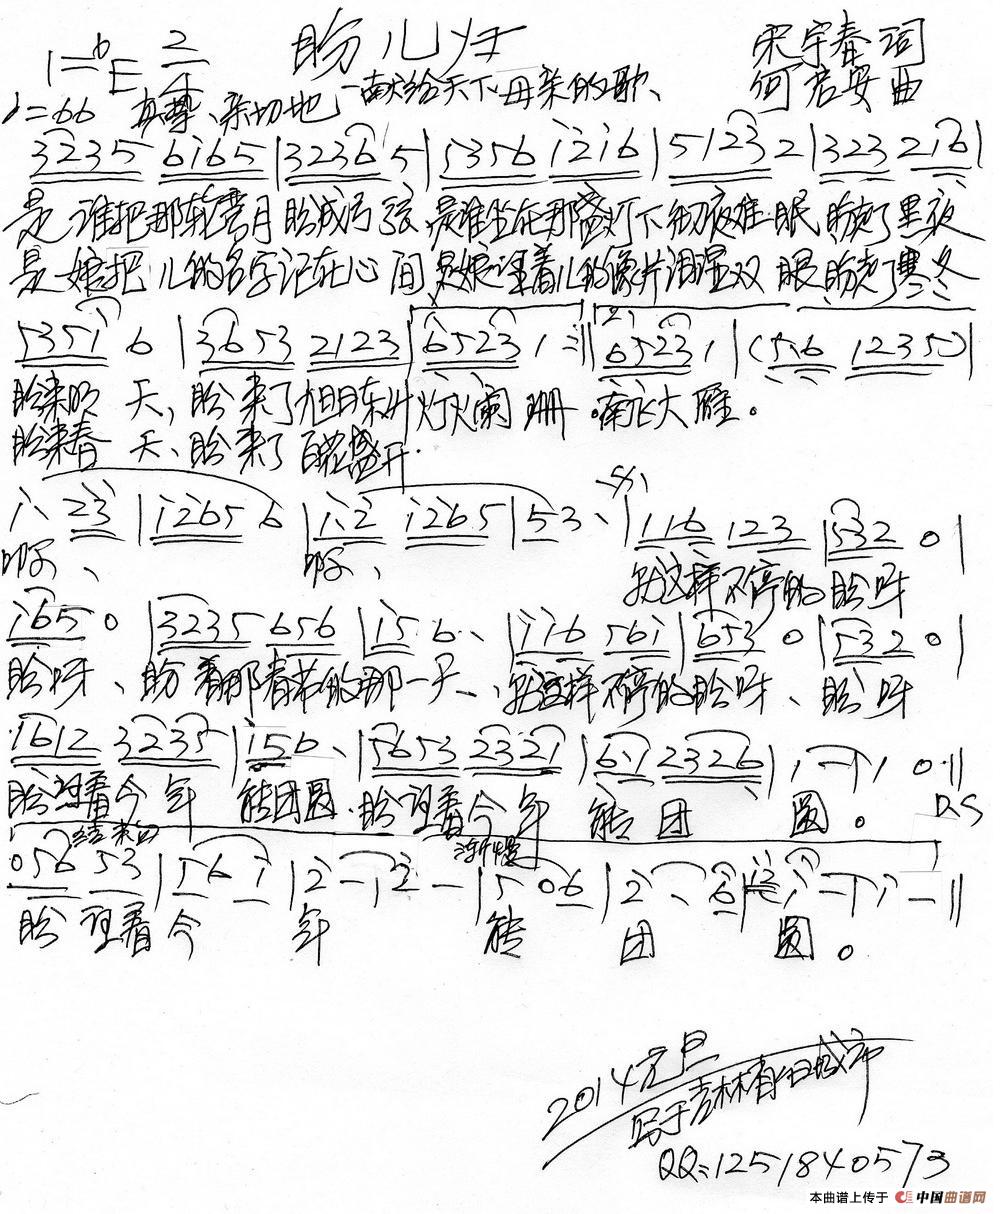 盼儿归
宋宇春 词
1=bE 2/4
—献给天下母亲的歌、
何君安 曲
♩=66 真挚、亲切地
3235 6i65|3236 5|5356 i2i6|5123 2|323 2i6|
是谁把那轮弯月盼成弓弦,是谁坐在那盏灯下彻夜难眠,盼走了黑夜
是娘把儿的名字记在心间 是娘望着儿的像片泪湿双眼 盼走了寒冬
535i 6|3653 2123|6523 1 :‖ 2) 6523 1|(5.6 1235)|
盼来明天,盼来了旭日东升 灯火阑珊。南飞大雁。
盼来春天、盼来了百花盛开.
i、23|i265 6|i.2 i265|53、|116 123|532 0|
啊、 啊、 就这样不停的盼呀
i65 0|3235 656|i5 6.、|ii6 56i|653 0|532 0|
盼呀、盼着那春节的那一天、就这样不停的盼呀、盼呀
i612 3235|i56、|5653 2321|6.1 2326|1-|1 0‖
D.S
盼望着今年 能团圆.盼望着今年 能团圆。
结束句
渐慢
056 53|56 i|2-|2-|5 06|2、6|i-|i-‖
盼望着今年 能团圆。
2014元旦
写于吉林省白城市
QQ:1251840573
本曲谱上传于 中国曲谱网